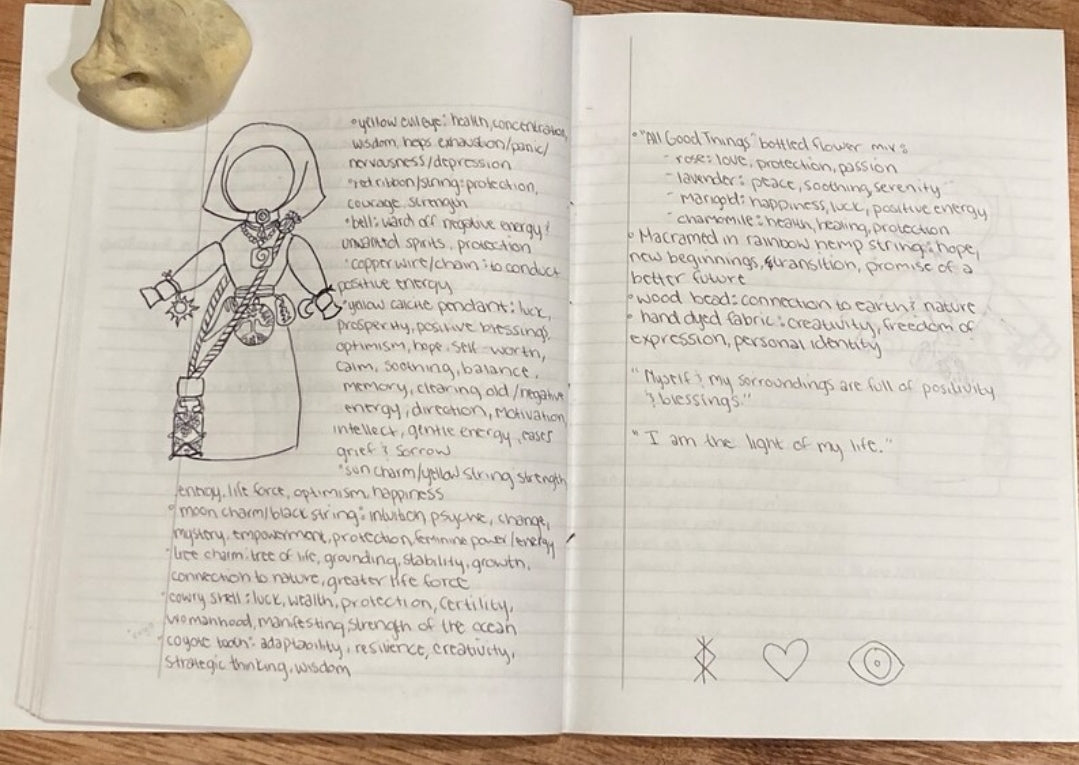 •yellow cateye: health, concentration,
wisdom, helps exhaustion/panic/
nervousness/depression
•red ribbon/string: protection,
courage, strength
•bell: ward off negative energy &
unwanted spirits, protection
•copper wire/chain: to conduct
positive energy
•yellow calcite pendant: luck,
prosperity, positive blessings,
optimism, hope, self-worth,
calm, soothing, balance,
memory, clearing old/negative
energy, direction, motivation,
intellect, gentle energy, eases
grief & sorrow
•sun charm/yellow string: strength
energy, life force, optimism, happiness
•moon charm/black string: intuition, psyche, change,
mystery, empowerment, protection, feminine power/energy
•tree charm: tree of life, grounding, stability, growth,
connection to nature, greater life force
•cowry shell: luck, wealth, protection, fertility,
womanhood, manifesting, strength of the ocean
•coyote tooth: adaptability, resilience, creativity,
strategic thinking, wisdom
• "All Good Things" bottled flower mix:
- rose: love, protection, passion
- lavender: peace, soothing, serenity
- marigold: happiness, luck, positive energy
- chamomile: health, healing, protection
• Macramed in rainbow hemp string: hope,
new beginnings, & transition, promise of a
better future
• wood bead: connection to earth & nature
• hand dyed fabric: creativity, freedom of
expression, personal identity
"Myself & my sorroundings are full of positivity
& blessings."
"I am the light of my life."